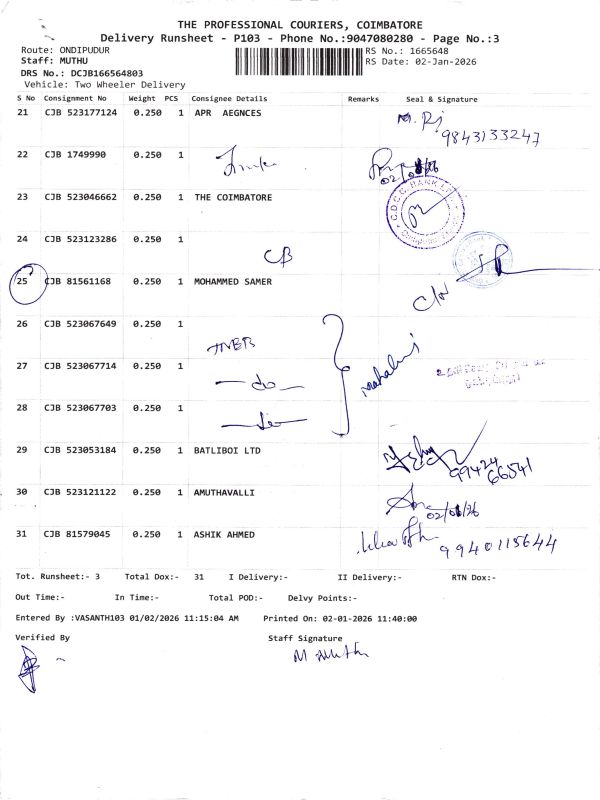 THE PROFESSIONAL COURIERS, COIMBATORE
Delivery Runsheet - P103 - Phone No.:9047080280 - Page No.:3
Route: ONDIPUDUR RS No.: 1665648
Staff: MUTHU RS Date: 02-Jan-2026
DRS No.: DCJB166564803
Vehicle: Two Wheeler Delivery
S No Consignment No Weight PCS Consignee Details Remarks Seal & Signature
21 CJB 523177124 0.250 1 APR AEGNCES
9843133247
22 CJB 1749990 0.250 1
02/01/26
23 CJB 523046662 0.250 1 THE COIMBATORE
C.D.C.C. BANK
24 CJB 523123286 0.250 1
CB
25 CJB 81561168 0.250 1 MOHAMMED SAMER
26 CJB 523067649 0.250 1
TNEB
27 CJB 523067714 0.250 1
-do-
28 CJB 523067703 0.250 1
-do-
29 CJB 523053184 0.250 1 BATLIBOI LTD
99424
66541
30 CJB 523121122 0.250 1 AMUTHAVALLI
02/01/26
31 CJB 81579045 0.250 1 ASHIK AHMED
9940115644
Tot. Runsheet:- 3 Total Dox:- 31 I Delivery:- II Delivery:- RTN Dox:-
Out Time:- In Time:- Total POD:- Delvy Points:-
Entered By :VASANTH103 01/02/2026 11:15:04 AM Printed On: 02-01-2026 11:40:00
Verified By Staff Signature
M Muthu